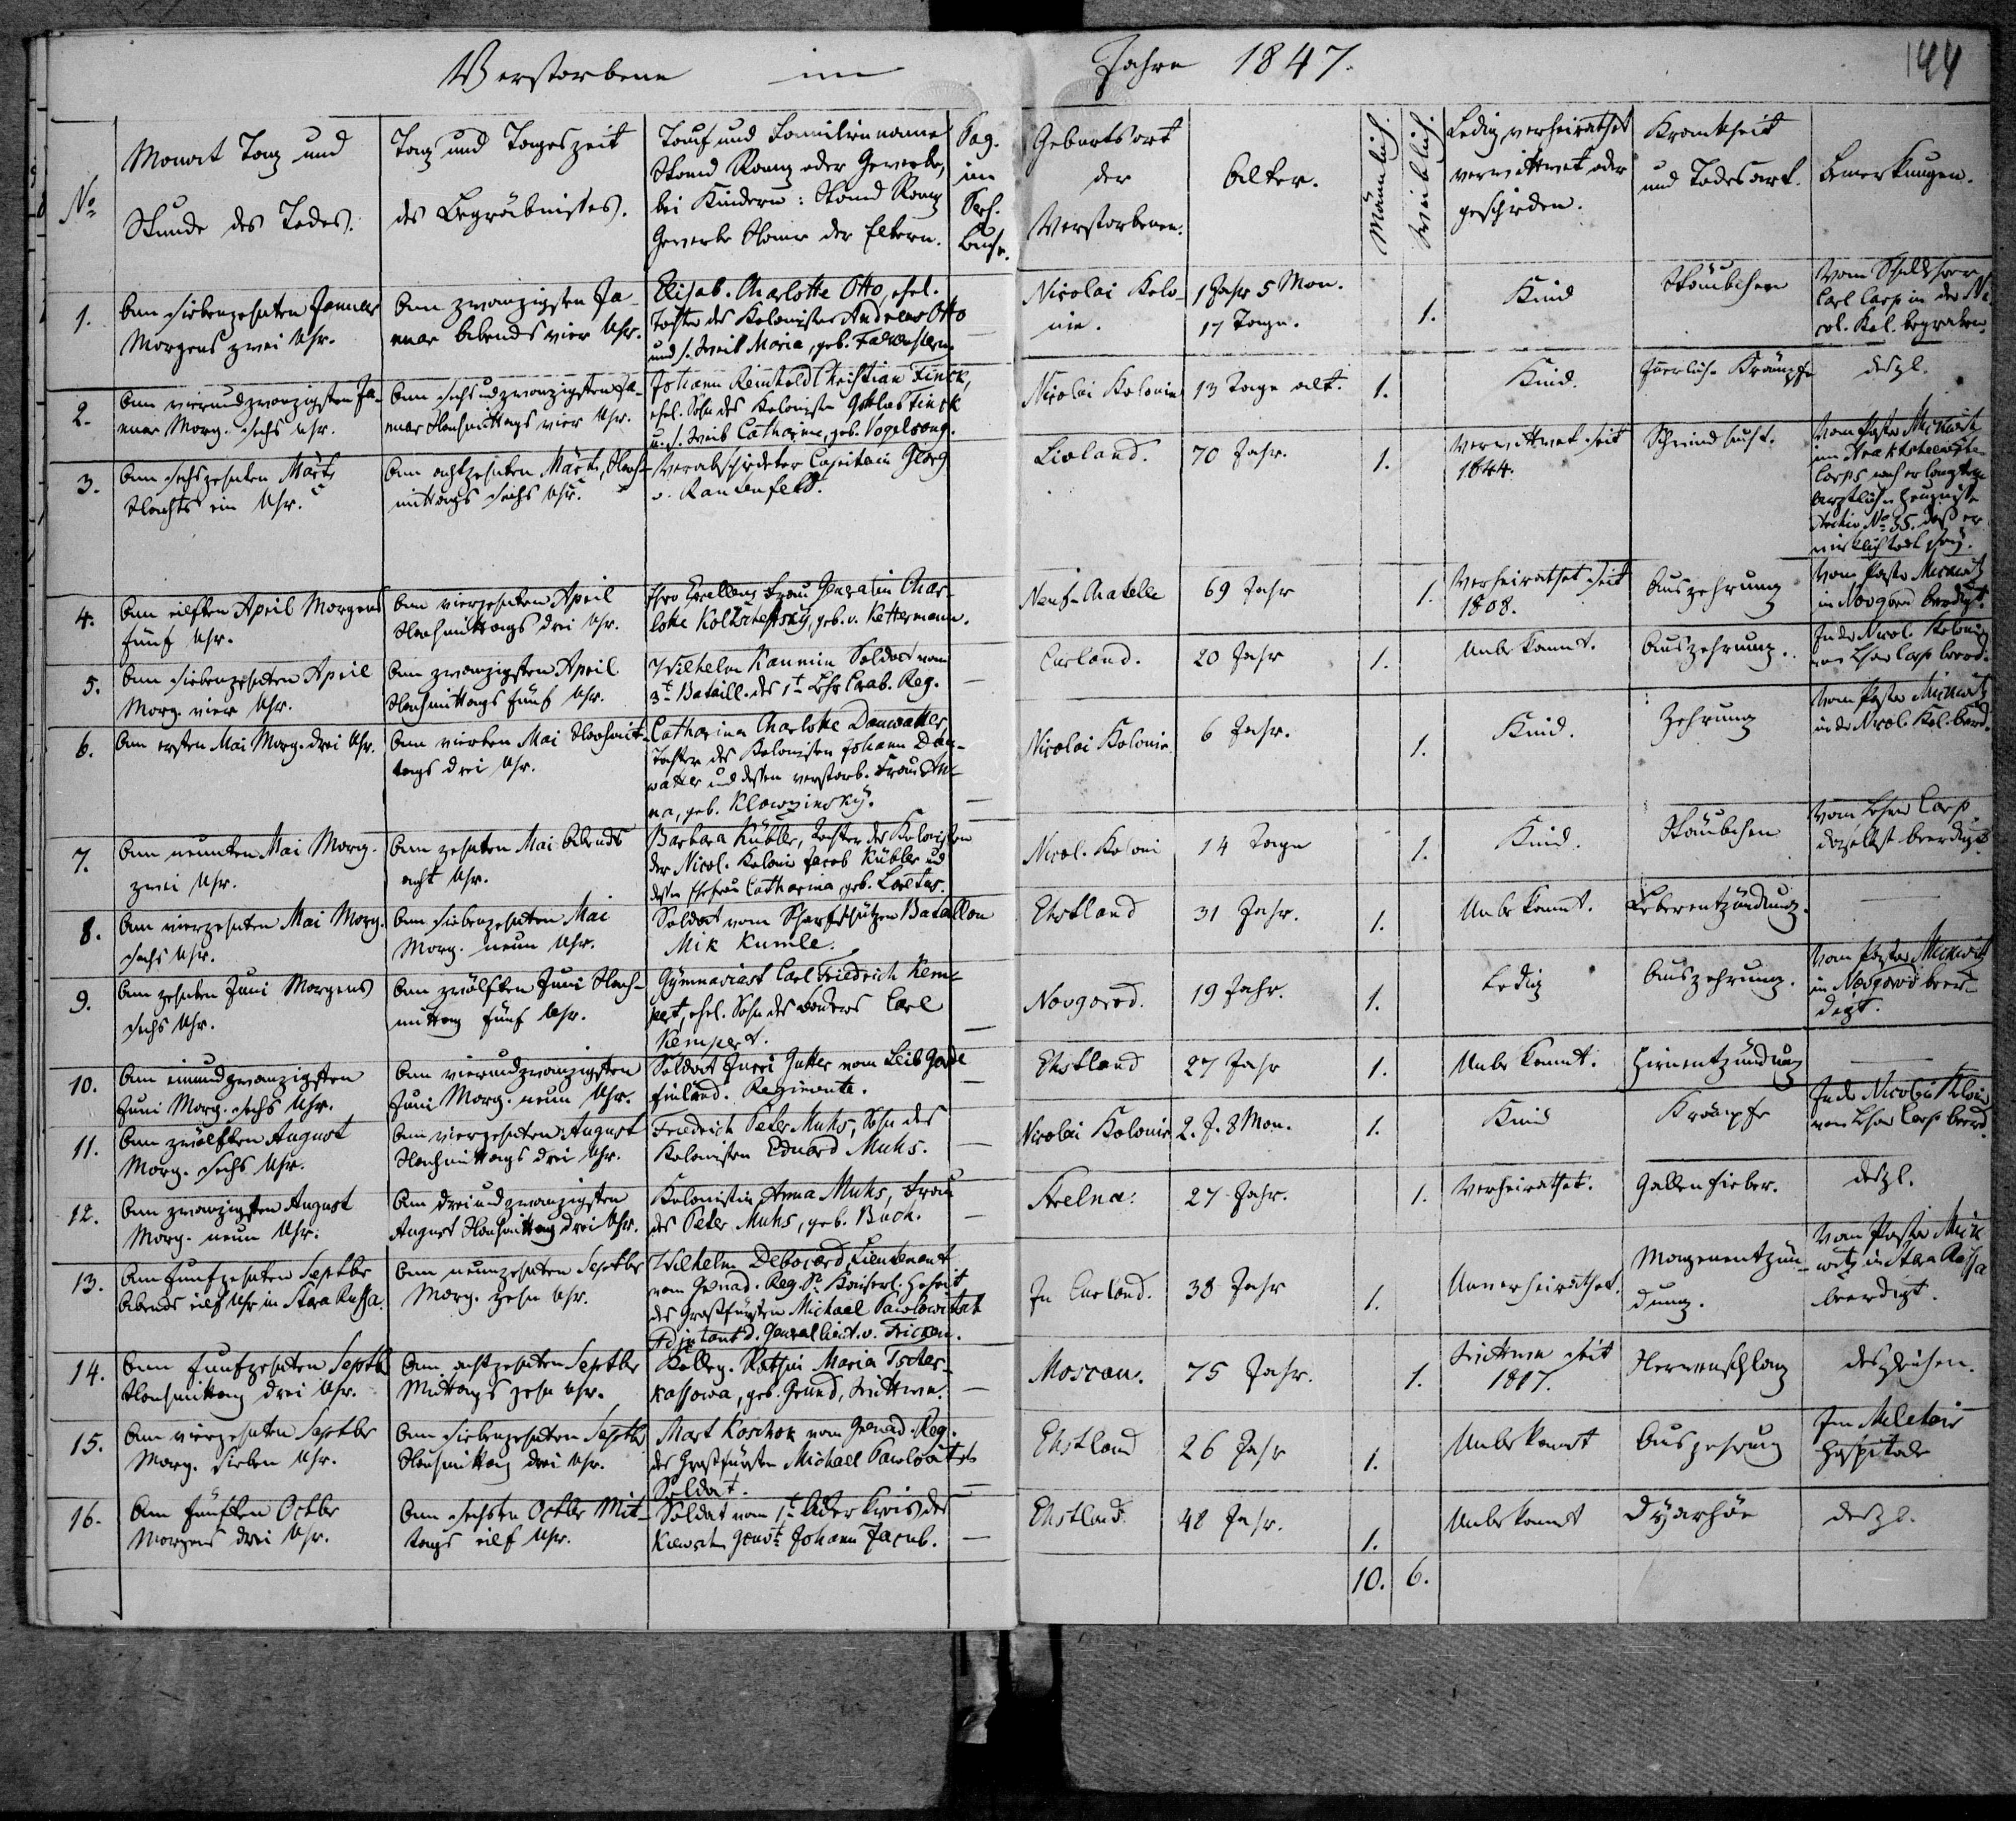 Verstorbene im Jahre 1847.
144
No
Monat Tag und
Stunde des Todes.
Tag und Tageszeit
des Begräbnisses.
Tauf und Familienname
Stand Rang oder Gewerbe,
bei Kindern: Stand Rang
Gewerbe Name der Eltern.
Pag.
im
Buche.
Geburtsort
der
Verstorbenen.
Alter.
Männlich.
Weiblich.
Ledig verheirathet
verwittwet oder
geschieden.
Krankheit
und Todesart.
Bemerkungen.
1.
Am siebenzehnten Januar
Morgens zwei Uhr.
Am zwanzigsten Ja-
nuar Abends vier Uhr.
Elisab. Charlotte Otto, ehel.
Tochter des Kolonisten Andreas Otto
und s. Weib Maria, geb.
Nicolai Kolo-
nie.
1 Jahr 5 Mon.
17 Tage.
1.
Kind
Stäubchen
Vom Schullehrer
Carl Carp in der Ni-
col. Kol. begraben.
2.
Am vierundzwanzigsten Ja-
nuar Morg. sechs Uhr.
Am sechsundzwanzigsten Ja-
nuar Nachmittags vier Uhr.
Johann Reinholdt Christian Finck,
ehel. Sohn des Kolonisten Gottlob Finck
u. s. Weib Catharina, geb. Vogelsang.
Nicolai Kolonie
13 Tage alt.
1.
Kind.
Innerliche Krämpfe
deszl.
3.
Am sechszehnten März
Nachts ein Uhr.
Am achtzehnten März, Nach-
mittags sechs Uhr.
Verabschiedeter Capitain Georg
v. Rautenfeld.
Livland.
70 Jahr.
1.
Verwittwet seit
1844.
Schwindsucht.
Vom Pastor Mickwitz
im
Corps nach erlangtem
ärztlichen Zeugnisse
Archiv No 35. daß er
wirklich todt sey.
4.
Am eilften April Morgens
fünf Uhr.
Am vierzehnten April
Nachmittags drei Uhr.
Ihro Excellenz Frau Generalin Char-
lotte Koltschefsky, geb. v. Kettermann.
Neuf-Chatelle
69 Jahr
1.
Verheirathet seit
1808.
Auszehrung
Vom Pastor Mickwitz
in Novgorod beerdigt.
5.
Am siebenzehnten April
Morg. vier Uhr.
Am zwanzigsten April
Nachmittags fünf Uhr.
Wilhelm Kaumin Soldat vom
3t Bataill. des 1t Lehr Carab. Reg.
Curland.
20 Jahr
1.
Unbekannt.
Auszehrung.
In der Nicol. Kolonie
von Lehrer Carp beerd.
6.
Am ersten Mai Morg. drei Uhr.
Am vierten Mai Nachmit-
tags drei Uhr.
Catharina Charlotte Dauwatter,
Tochter des Kolonisten Johann Dau-
watter und dessen verstorb. Frau An-
na, geb. Klawzinsky.
Nicolai Kolonie
6 Jahr.
1.
Kind.
Zehrung
Vom Pastor Mickwitz
in der Nicol. Kol. beerd.
7.
Am neunten Mai Morg.
zwei Uhr.
Am zehnten Mai Abends
acht Uhr.
Barbara Kübler, Tochter des Kolonisten
der Nicol. Kolonie Jacob Kübler und
dessen Ehefrau Catharina, geb.
Nicol. Koloni
14 Tage
1.
Kind.
Stäubchen
Vom Lehrer Carp
daselbst beerdigt.
8.
Am vierzehnten Mai Morg.
sechs Uhr.
Am siebenzehnten Mai
Morg. neun Uhr.
Soldat vom Scharfschützen Bataillon
Mik Kumle.
Ehstland
31 Jahr.
1.
Unbekannt.
Leberentzündung.
9.
Am zehnten Juni Morgens
sechs Uhr.
Am zwölften Juni Nach-
mittag fünf Uhr.
Gymnasiast Carl Friedrich Kem-
pert, ehel. Sohn des Carl
Kempert.
Novgorod.
19 Jahr.
1.
Ledig
Auszehrung.
Vom Pastor Mickwitz
in Novgorod beer-
digt.
10.
Am einundzwanzigsten
Juni Morg. sechs Uhr.
Am vierundzwanzigsten
Juni Morg. neun Uhr.
Soldat Jurri Gutter vom Leib Garde
finländ. Regimente.
Ehstland
27 Jahr
1.
Unbekannt.
Hirnentzündung
11.
Am zwölften August
Morg. sechs Uhr.
Am vierzehnten August
Nachmittags drei Uhr.
Friedrich Peter Muhs, Sohn des
Kolonisten Eduard Muhs.
Nicolai Kolonie
2. J. 8 Mon.
1.
Kind
Krämpfe
In der Nicolai Kolonie
von Lehrer Carp beerd.
12.
Am zwanzigsten August
Morg. neun Uhr.
Am dreiundzwanzigsten
August Nachmittag drei Uhr.
Kolonistin Anna Muhs, Frau
des Peter Muhs, geb. Buch.
Strelna.
27 Jahr.
1.
Verheirathet.
Gallenfieber.
deszl.
13.
Am funfzehnten Septbr
Abends eilf Uhr in Stara Russa.
Am neunzehnten Septbr
Morg. zehn Uhr.
Wilhelm Debocard, Lieutenant
vom Grenad. Reg. Sr Kaiserl. Hoheit
des Großfürsten Michael Pawlowitsch
Adjutant d. Generallieut. v. Fricken.
In Curland.
38 Jahr
1.
Unverheirathet.
Magenentzün-
dung.
Vom Pastor Mick-
witz in Stara Russa
beerdigt.
14.
Am funfzehnten Septbr
Nachmittag drei Uhr.
Am achtzehnten Septbr
Mittags zehn Uhr.
Kolleg. Räthin Maria Tscher-
kassowa, geb. Grund, Wittwe.
Moscau.
75 Jahr.
1.
Wittwe seit
1817.
Nervenschlag
desgleichen.
15.
Am vierzehnten Septbr
Morg. sieben Uhr.
Am siebenzehnten Septbr
Nachmittag drei Uhr.
Mart Koschok vom Grenad. Reg.
des Großfürsten Michael Pawlowitsch
Soldat.
Ehstland
26 Jahr
1.
Unbekannt
Auszehrung
Im Militair
Hospitale
16.
Am fünften Octbr
Morgens drei Uhr.
Am sechsten Octbr Mit-
tags eilf Uhr.
Soldat vom 1t des
Johann Jacub.
Ehstland
48 Jahr.
1.
Unbekannt
Dyarhöe
deszl.
10. 6.